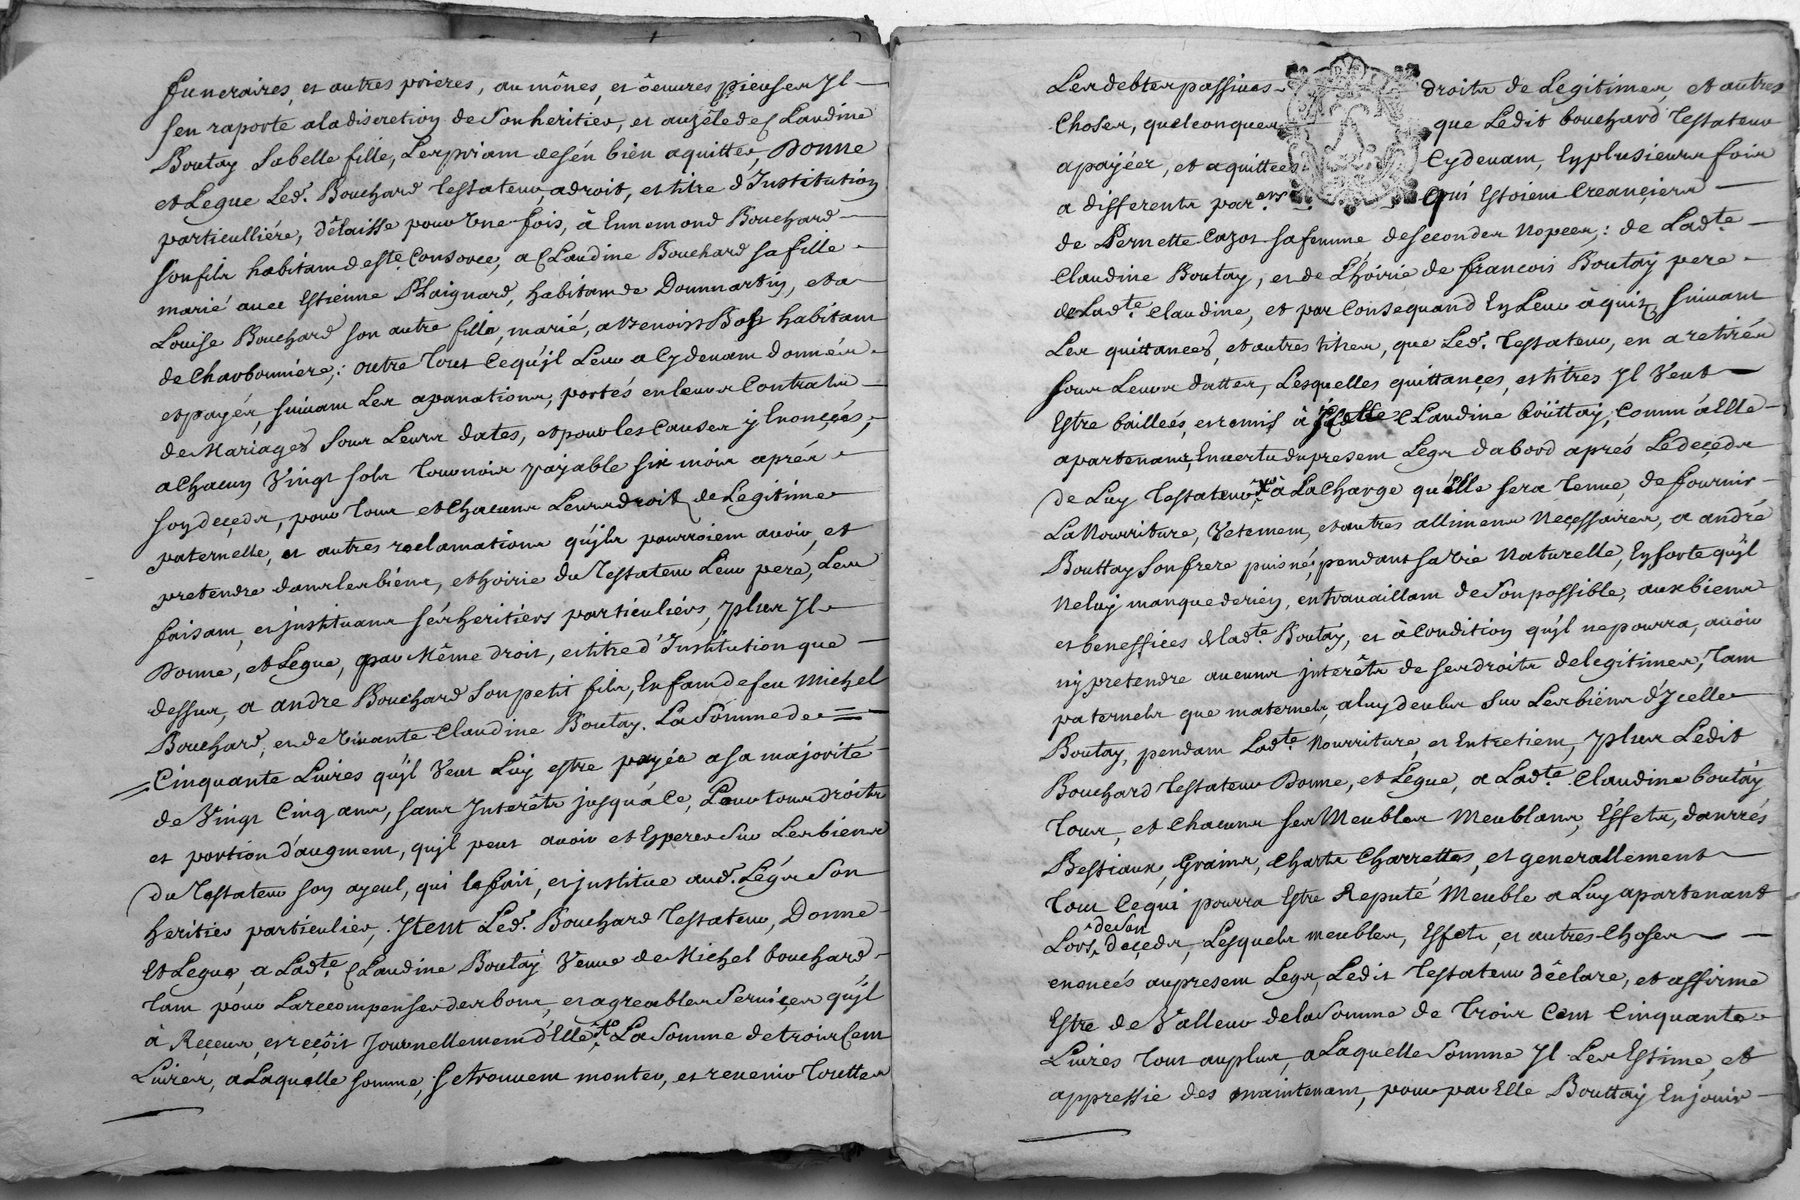 funeraires, et autres prieres, aumônes, et oeuvres pieuses Jl
sen raporte a la discretion de Son heritier, et au zéle de Claudine
Boutay Sa belle fille, Les priant de sén bien aquitter, Donne
et Legue Led. Bouchard Testateur, a droit, et titre d'Institution
particulliére, délaissé pour Une fois, à Ennemond Bouchard
son fils habitant de Ste. Consorce, a Claudine Bouchard sa fille
marié avec Estienne Plaignard, habitant de Dommartin, et a
Louise Bouchard son autre fille, marié, a Benoist habitant
de Charbonniére,: outre Tout Ce qu'jl Leur a Cy devant donnés
et payés, suivant Les apanations, portés en leurs Contrats
de Mariages Sous Leurs dates, et pour les Causes y Enonçées,
a Chacun Vingt sols Tournois payable six mois aprés
son deçeds, pour Tous et Chacuns Leurs droits de Legitime
paternelle, et autres reclamations qu'jls pourroient avoir, et
pretendre dans les biens, et hoirie du Testateur Leur pere, Les
faisant, et jnstituant sés heritiers particuliérs, plus Jl
Donne, et Legue, par Même droit, et titre d'Institution que
dessus, a andre Bouchard Son petit fils, Enfant de feu Michel
Bouchard, et de vivante Claudine Boutay. La Sómme de
Cinquante Livres qu'jl Veut Luy estre payée a sa majorité
de Vingt Cinq ans, sans Interêts jusqu'à Ce, Pour tous droits
et portion d'augment, qu'jl peut avoir et Esperer Sur Les biens
du Testateur son ayeul, qui le fait, et jnstitue aud. Légs Son
heritier particulier, Jtem Led. Bouchard Testateur, Donne
Et Legue, a Ladte. Claudine Boutay Veuve de Michel bouchard
Tant pour La recompenser des bons, et agreables Serviçes qu'jl
à Reçeus, et reçóit Journellement d'Elle La Somme de trois Cent
Livres, a Laquelle somme, se trouvent monter, et revenir Touttes
Les debtes passives droits de Legitimes, et autres
Choses, quelconques que Ledit bouchard Testateur
a payées, et aquittees Cy devant, En plusieurs fois
a differents par.ers Qui Estoient Creançiers
de Pernette Cazot sa femme de secondes Nopces,: de Ladte.
Claudine Boutay, et de L'hoirie de francois Boutay pere
de Ladte. Claudine, et par Consequand En Leur àquit, suivant
Les quittances, et autres titres, que Led. Testateur, en a retirés
sous Leurs dattes, Lesquelles quittançes, et titres Jl Veut
Estre bailleés, et remis à Claudine boüttay, Comm'à Elle
apartenants, En vertu du present Legs d'abord aprés Le deçéds
de Luy Testateur, à La Charge qu'Elle sera Tenue, de fournir
La Nourriture, Vetement, et autres alliments Neçessaires, a andré
Bouttay Son frere puisné, pendant sa vie Naturelle, En sorte qu'jl
Ne luy manque de rien, en travaillant de Son possible, aux biens
et beneffices de ladte. Boutay, et à Condition qu'jl ne pourra, avoir
ny pretendre aucuns jnterêts de ses droits de legitimes, Tant
paternels que maternels, a luy deubs Sur Les biéns d'Jcelle
Boutay, pendant Ladte. Nourriture, et Entretient, plus Ledit
Bouchard Testateur Donne, et Légue, a Ladte. Claudine boutay
Tous, et Chacuns ses Meubles Meublans, Effets, danrrés
Bestiaux, Grains, Charts Charrettes, et generallement
Tout Ce qui pourra Estre Reputé Meuble a Luy apartenant
Lors de Son deçeds, Lesquels meubles, Effets, et autres Choses
enoncés au present Legs, Ledit Testateur déclare, et affirme
Estre de Valleur de la Somme de Trois Cent Cinquante
Livres Tout au plus, a Laquelle Somme Jl Les Estime, et
appressie des maintenant, pour par Elle Bouttay En jouir